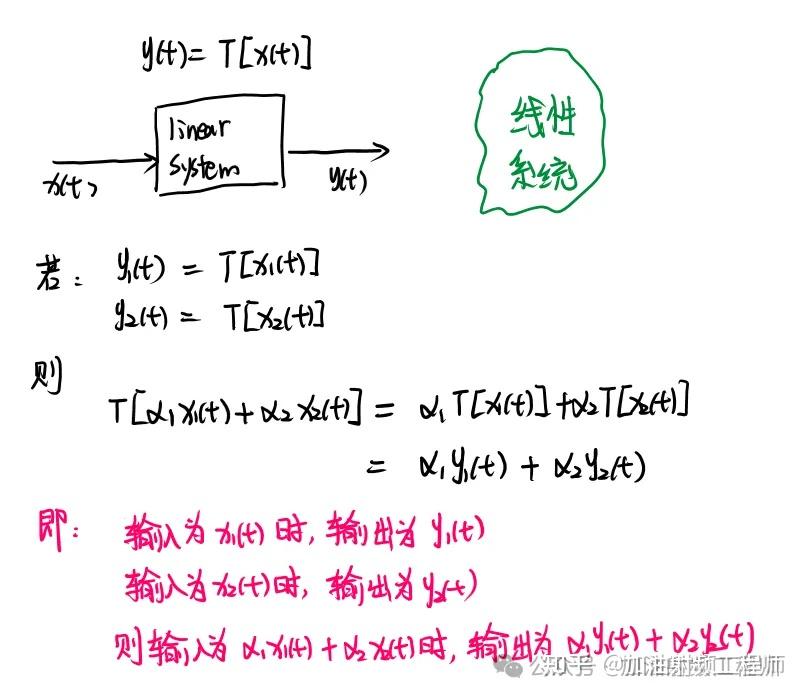 y(t)= T[x(t)]
linear
system
x(t)
y(t)
线性
系统
若: y₁(t) = T[x₁(t)]
y₂(t) = T[x₂(t)]
则
T[α₁x₁(t)+α₂x₂(t)] = α₁T[x₁(t)]+α₂T[x₂(t)]
= α₁y₁(t) + α₂y₂(t)
即: 输入为x₁(t)时, 输出为y₁(t)
输入为x₂(t)时, 输出为y₂(t)
则输入为α₁x₁(t)+α₂x₂(t)时, 输出为α₁y₁(t)+α₂y₂(t)
公众号 @加油射频工程师